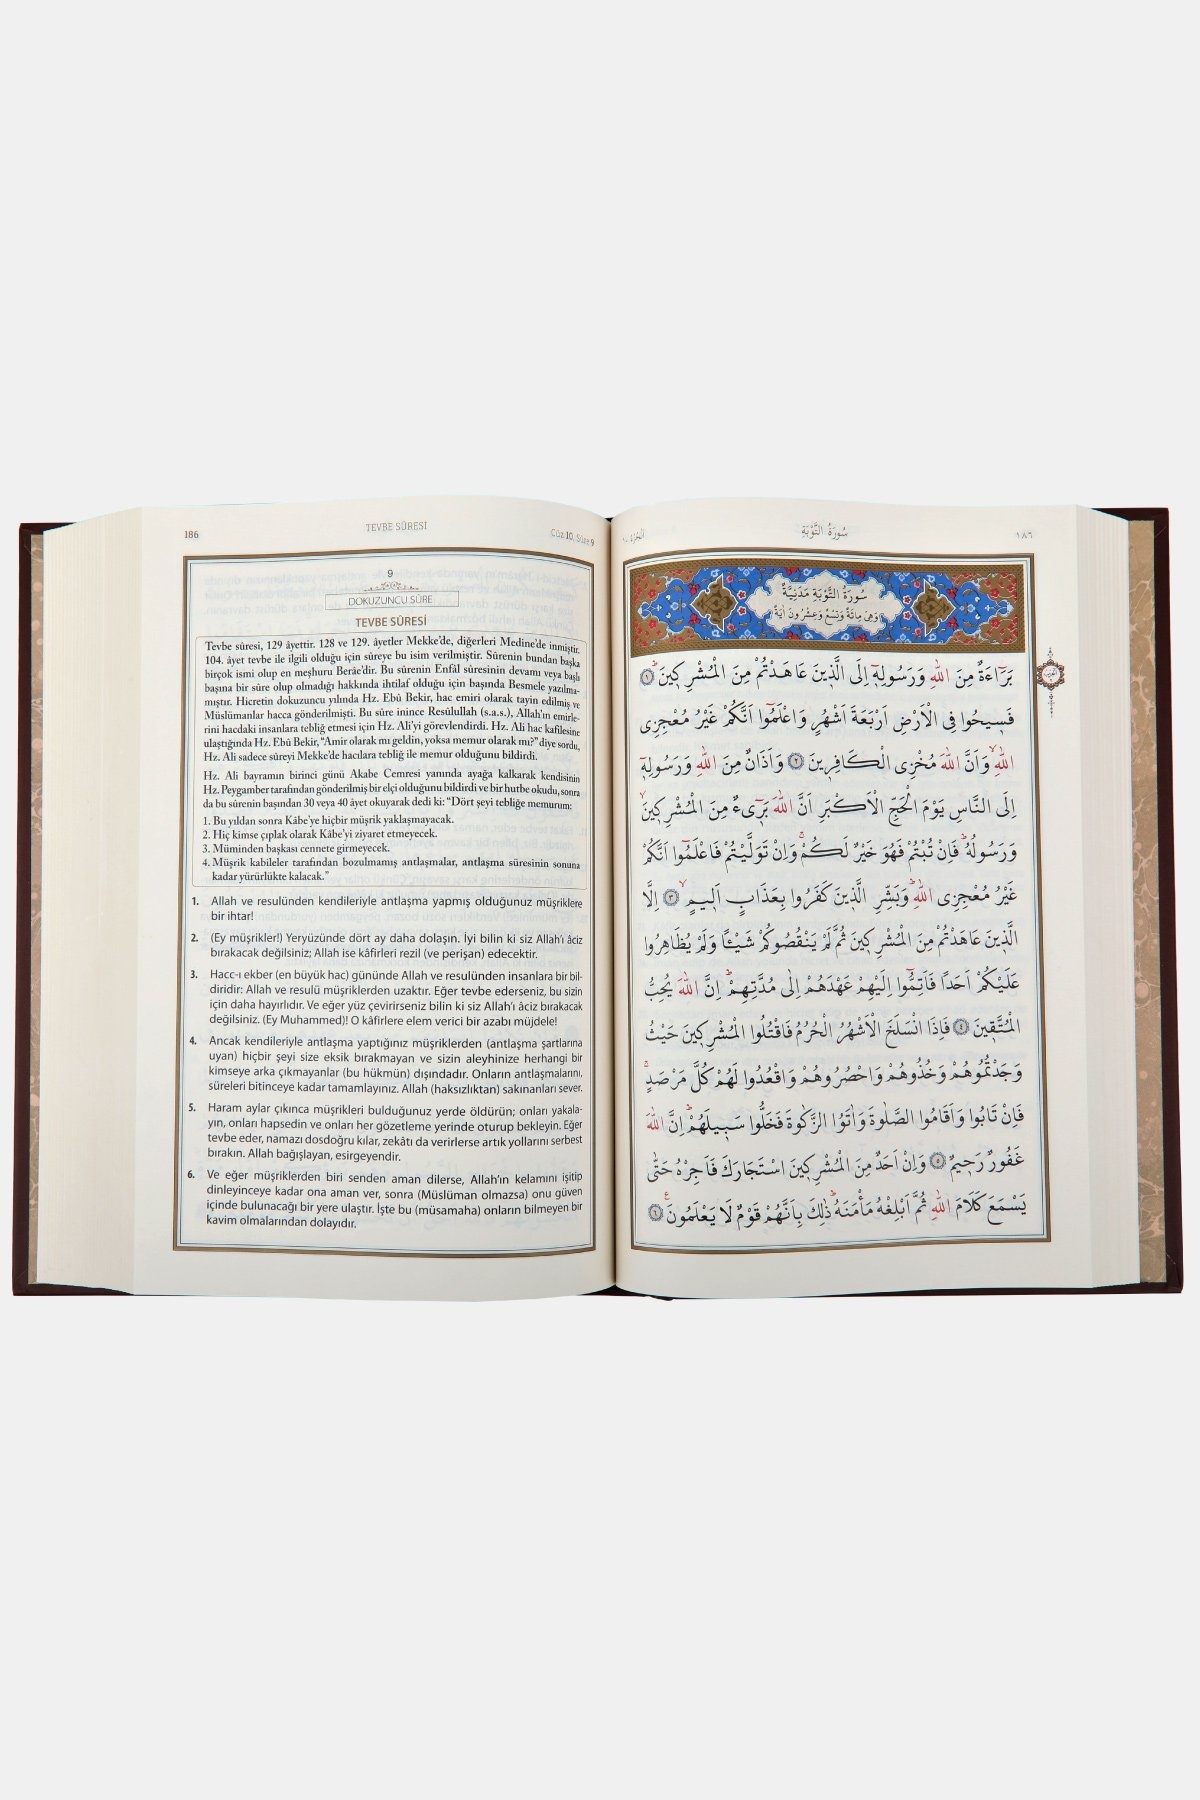 186
TEVBE SÛRESİ
Cüz 10, Sûre 9
9
DOKUZUNCU SÛRE
TEVBE SÛRESİ
Tevbe sûresi, 129 âyettir. 128 ve 129. âyetler Mekke'de, diğerleri Medine'de inmiştir.
104. âyet tevbe ile ilgili olduğu için sûreye bu isim verilmiştir. Sûrenin bundan başka
birçok ismi olup en meşhuru Berâe'dir. Bu sûrenin Enfâl sûresinin devamı veya başlı
başına bir sûre olup olmadığı hakkında ihtilaf olduğu için başında Besmele yazılma-
mıştır. Hicretin dokuzuncu yılında Hz. Ebû Bekir, hac emiri olarak tayin edilmiş ve
Müslümanlar hacca gönderilmişti. Bu sûre inince Resûlullah (s.a.s.), Allah'ın emirle-
rini hacdaki insanlara tebliğ etmesi için Hz. Ali'yi görevlendirdi. Hz. Ali hac kafilesine
ulaştığında Hz. Ebû Bekir, "Amir olarak mı geldin, yoksa memur olarak mı?" diye sordu,
Hz. Ali sadece sûreyi Mekke'de hacılara tebliğ ile memur olduğunu bildirdi.
Hz. Ali bayramın birinci günü Akabe Cemresi yanında ayağa kalkarak kendisinin
Hz. Peygamber tarafından gönderilmiş bir elçi olduğunu bildirdi ve bir hutbe okudu, sonra
da bu sûrenin başından 30 veya 40 âyet okuyarak dedi ki: "Dört şeyi tebliğe memurum:
1. Bu yıldan sonra Kâbe'ye hiçbir müşrik yaklaşmayacak.
2. Hiç kimse çıplak olarak Kâbe'yi ziyaret etmeyecek.
3. Müminden başkası cennete girmeyecek.
4. Müşrik kabileler tarafından bozulmamış antlaşmalar, antlaşma süresinin sonuna
kadar yürürlükte kalacak."
1. Allah ve resulünden kendileriyle antlaşma yapmış olduğunuz müşriklere
bir ihtar!
2. (Ey müşrikler!) Yeryüzünde dört ay daha dolaşın. İyi bilin ki siz Allah'ı âciz
bırakacak değilsiniz; Allah ise kâfirleri rezil (ve perişan) edecektir.
3. Hacc-ı ekber (en büyük hac) gününde Allah ve resulünden insanlara bir bil-
diridir: Allah ve resulü müşriklerden uzaktır. Eğer tevbe ederseniz, bu sizin
için daha hayırlıdır. Ve eğer yüz çevirirseniz bilin ki siz Allah'ı âciz bırakacak
değilsiniz. (Ey Muhammed)! O kâfirlere elem verici bir azabı müjdele!
4. Ancak kendileriyle antlaşma yaptığınız müşriklerden (antlaşma şartlarına
uyan) hiçbir şeyi size eksik bırakmayan ve sizin aleyhinize herhangi bir
kimseye arka çıkmayanlar (bu hükmün) dışındadır. Onların antlaşmalarını,
süreleri bitinceye kadar tamamlayınız. Allah (haksızlıktan) sakınanları sever.
5. Haram aylar çıkınca müşrikleri bulduğunuz yerde öldürün; onları yakala-
yın, onları hapsedin ve onları her gözetleme yerinde oturup bekleyin. Eğer
tevbe eder, namazı dosdoğru kılar, zekâtı da verirlerse artık yollarını serbest
bırakın. Allah bağışlayan, esirgeyendir.
6. Ve eğer müşriklerden biri senden aman dilerse, Allah'ın kelamını işitip
dinleyinceye kadar ona aman ver, sonra (Müslüman olmazsa) onu güven
içinde bulunacağı bir yere ulaştır. İşte bu (müsamaha) onların bilmeyen bir
kavim olmalarından dolayıdır.
١٨٦
سُورَةُ التَّوْبَةِ
اَلْجُزْءُ ١٠
سُورَةُ التَّوْبَةِ مَدَنِيَّةٌ
وَهِيَ مِائَةٌ وَتِسْعٌ وَعِشْرُونَ اٰيَةً
بَرَٓاءَةٌ مِنَ اللّٰهِ وَرَسُولِه۪ٓ اِلَى الَّذ۪ينَ عَاهَدْتُمْ مِنَ الْمُشْرِك۪ينَۜ ﴿١﴾
فَس۪يحُوا فِي الْاَرْضِ اَرْبَعَةَ اَشْهُرٍ وَاعْلَمُٓوا اَنَّكُمْ غَيْرُ مُعْجِزِي
اللّٰهِۙ وَاَنَّ اللّٰهَ مُخْزِي الْكَافِر۪ينَ ﴿٢﴾ وَاَذَانٌ مِنَ اللّٰهِ وَرَسُولِه۪ٓ
اِلَى النَّاسِ يَوْمَ الْحَجِّ الْاَكْبَرِ اَنَّ اللّٰهَ بَر۪ٓيءٌ مِنَ الْمُشْرِك۪ينَۙ
وَرَسُولُهُۜ فَاِنْ تُبْتُمْ فَهُوَ خَيْرٌ لَكُمْۚ وَاِنْ تَوَلَّيْتُمْ فَاعْلَمُٓوا اَنَّكُمْ
غَيْرُ مُعْجِزِي اللّٰهِۜ وَبَشِّرِ الَّذ۪ينَ كَفَرُوا بِعَذَابٍ اَل۪يمٍۙ ﴿٣﴾ اِلَّا
الَّذ۪ينَ عَاهَدْتُمْ مِنَ الْمُشْرِك۪ينَ ثُمَّ لَمْ يَنْقُصُوكُمْ شَيْـًٔا وَلَمْ يُظَاهِرُوا
عَلَيْكُمْ اَحَدًا فَاَتِمُّٓوا اِلَيْهِمْ عَهْدَهُمْ اِلٰى مُدَّتِهِمْۜ اِنَّ اللّٰهَ يُحِبُّ
الْمُتَّق۪ينَ ﴿٤﴾ فَاِذَا انْسَلَخَ الْاَشْهُرُ الْحُرُمُ فَاقْتُلُوا الْمُشْرِك۪ينَ حَيْثُ
وَجَدْتُمُوهُمْ وَخُذُوهُمْ وَاحْصُرُوهُمْ وَاقْعُدُوا لَهُمْ كُلَّ مَرْصَدٍۚ
فَاِنْ تَابُوا وَاَقَامُوا الصَّلٰوةَ وَاٰتَوُا الزَّكٰوةَ فَخَلُّوا سَب۪يلَهُمْۜ اِنَّ اللّٰهَ
غَفُورٌ رَح۪يمٌ ﴿٥﴾ وَاِنْ اَحَدٌ مِنَ الْمُشْرِك۪ينَ اسْتَجَارَكَ فَاَجِرْهُ حَتّٰى
يَسْمَعَ كَلَامَ اللّٰهِ ثُمَّ اَبْلِغْهُ مَأْمَنَهُۜ ذٰلِكَ بِاَنَّهُمْ قَوْمٌ لَا يَعْلَمُونَ۟ ﴿٦﴾